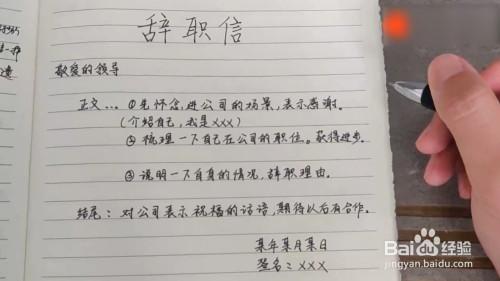 辞职信
敬爱的领导
正文... ①先怀念进公司的场景,表示感谢。
(介绍自己,我是XXX)
②梳理一下自己在公司的职位。获得进步。
③说明一下自身的情况,辞职理由。
结尾:对公司表示祝福的话语,期待以后有合作。
某年某月某日
签名:XXX
Baidu 经验
jingyan.baidu.com